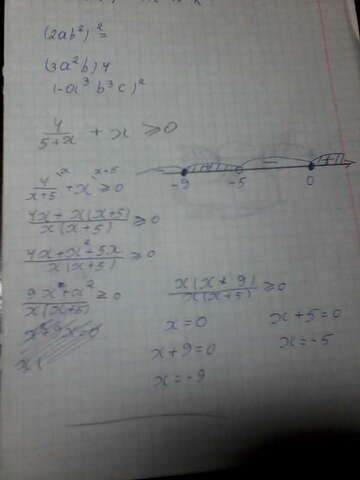 (2ab²)² =
(3a²b)4
(-a³b³c)²
4/(5+x) + x ≥ 0
4/(x+5) + x ≥ 0
x x+5
(4x + x(x+5))/(x(x+5)) ≥ 0
(4x+x²-5x)/(x(x+5)) ≥ 0
(9x+x²)/(x(x+5)) ≥ 0
x(x+9)/(x(x+5)) ≥ 0
x=0
x+9=0
x=-9
x+5=0
x=-5
x(
-9 -5 0